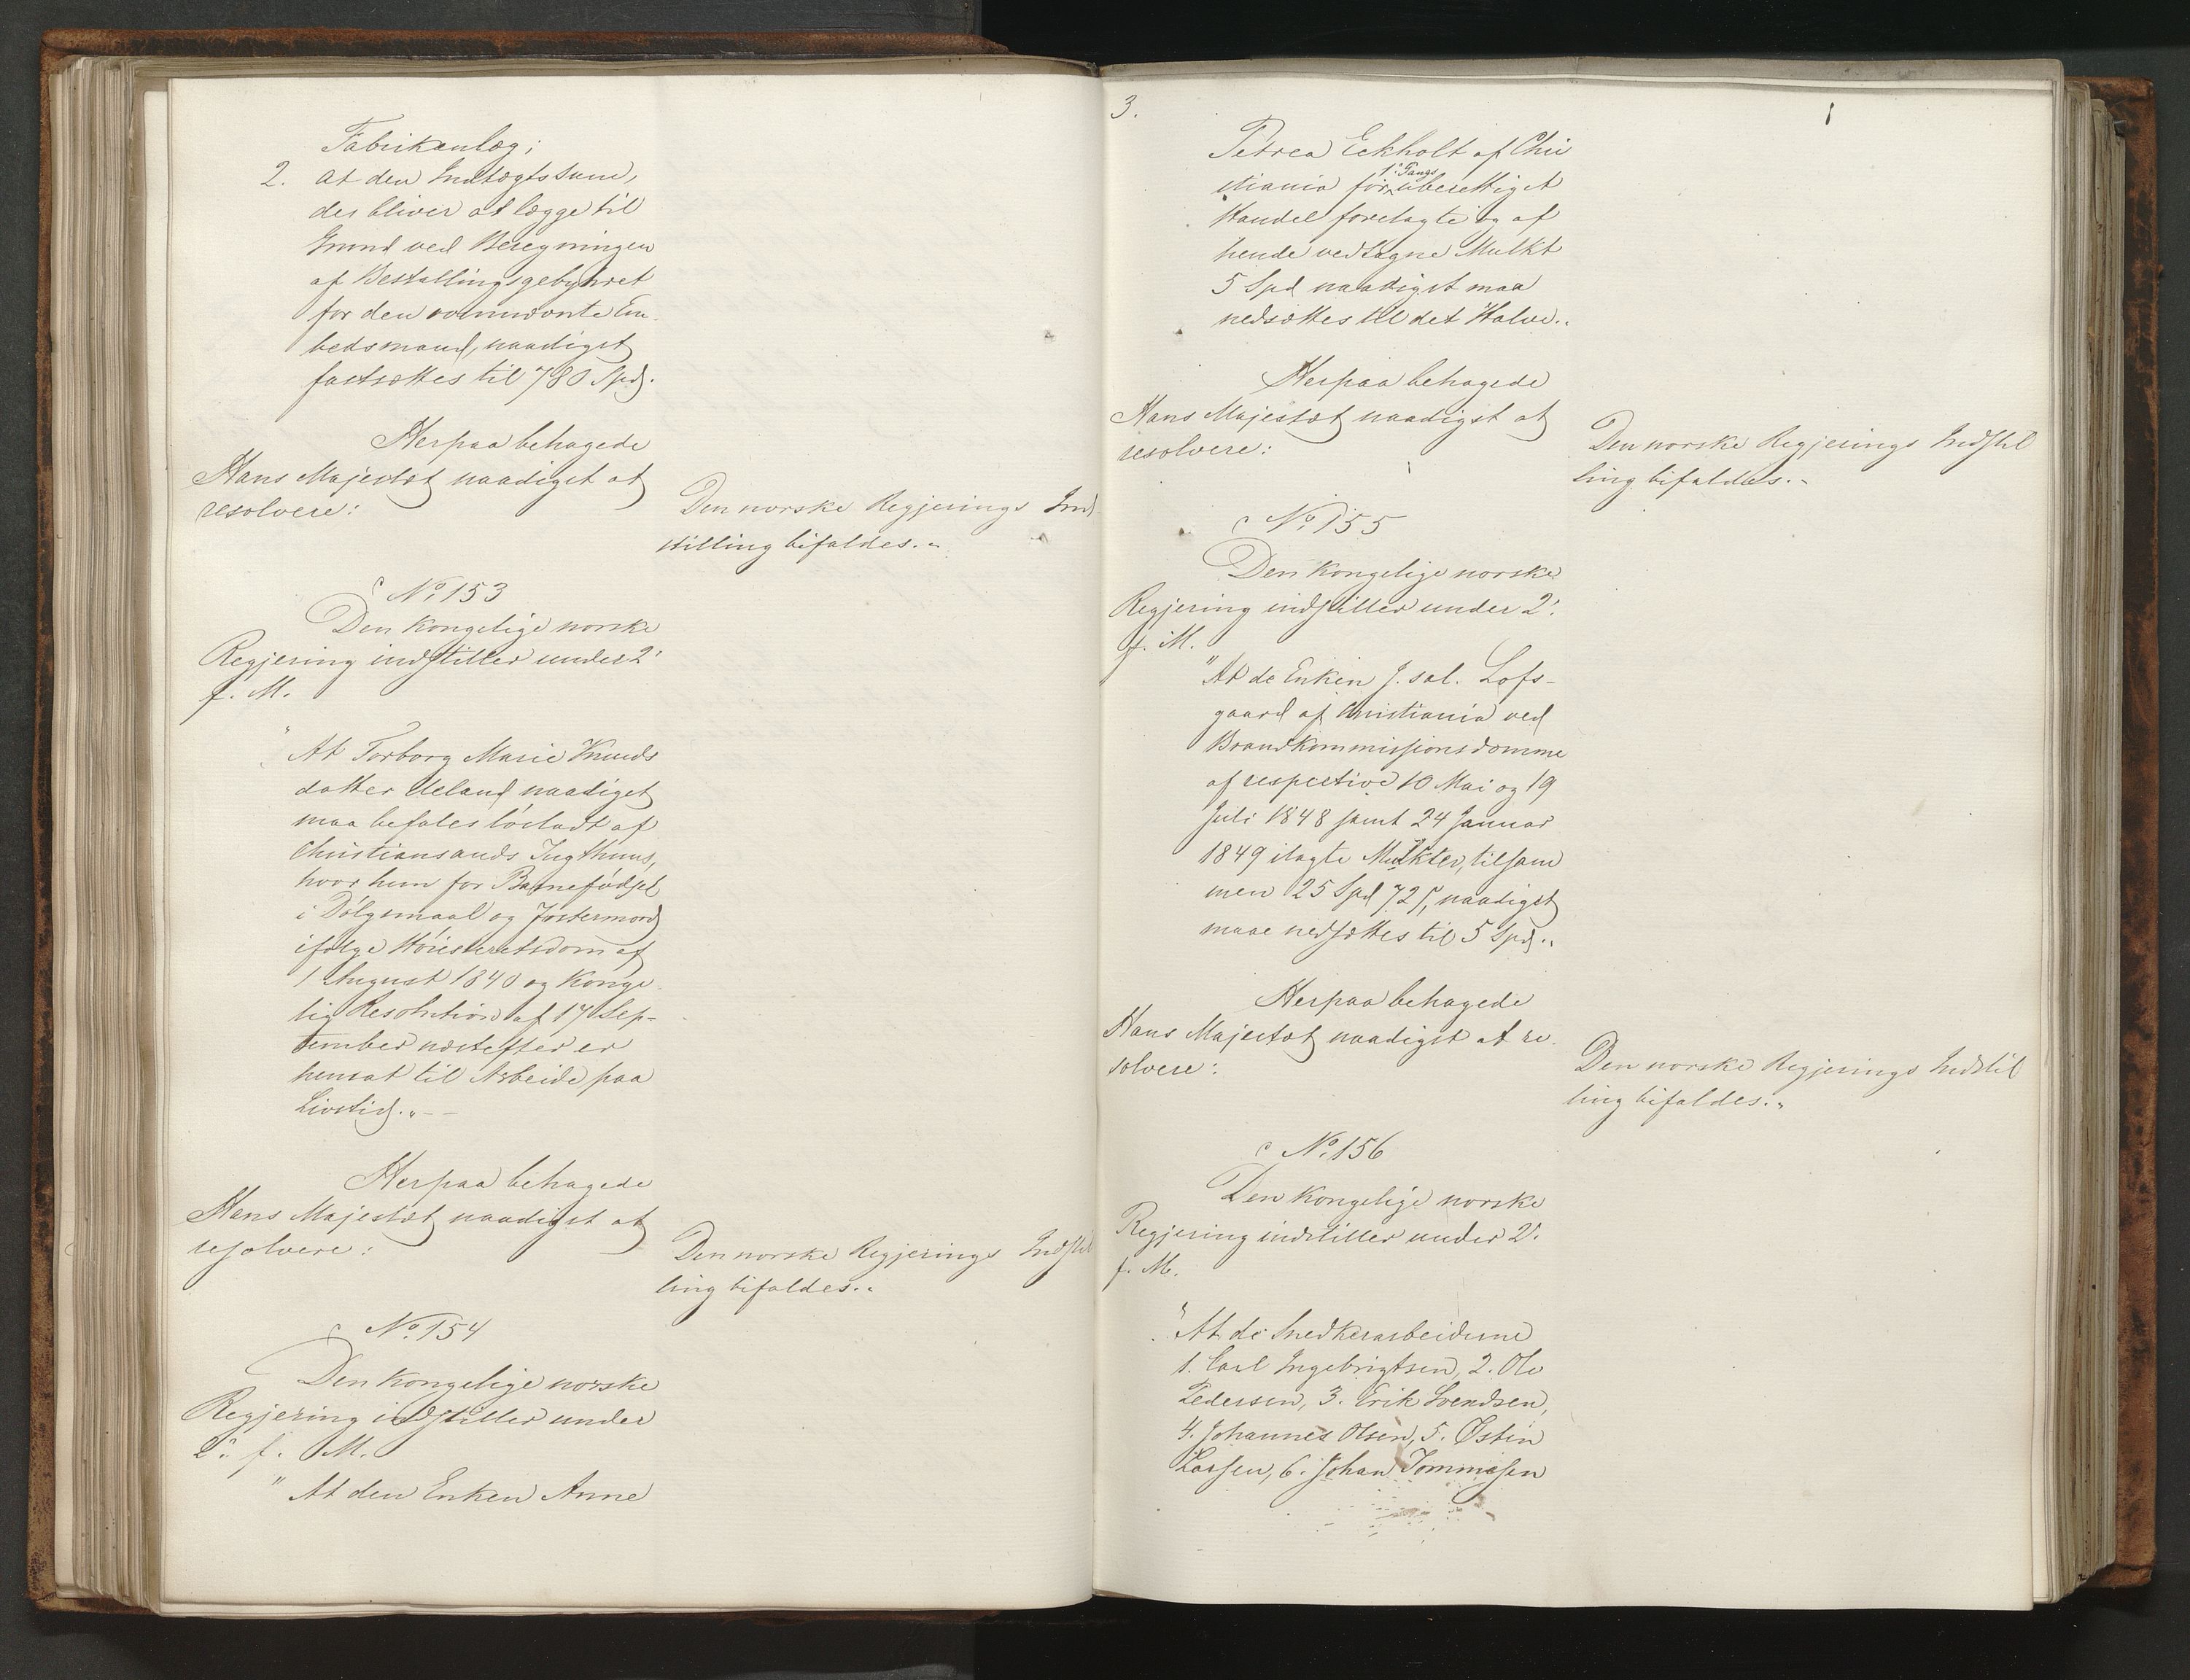 Fabrikanlæg;
2. at den Indtægtssum,
der bliver at lægge til
Grund ved Beregningen
af Bestallingsgebyhret
for den ommeldte Em-
bedsmand, naadigst
fastsættes til 780 Spd.
Herpaa behagede
Hans Majestæt naadigst at
resolvere:
Den norske Regjerings Ind-
stilling bifaldes."
No 153
Den kongelige norske
Regjering indstiller under 2'
f. M.
"At Torborg Marie Knuds
datter Ueland naadigst
maa befales løsladt af
Christiansands Tugthuus,
hvor hun for Barnefødsel
i Dølgsmaal og Fostermord
ifølge Høiesteretsdom af
1 August 1840 og Konge
lig Resolution af 17 Sep-
tember næstefter er
hensat til Arbeide paa
Livstid." — —
Herpaa behagede
Hans Majestæt naadigst at
resolvere:
Den norske Regjerings Indstil
ling bifaldes."
No 154
Den kongelige norske
Regjering indstiller under
2: f. M.
"At den Enken Anne
3.
Petrea Eckholt af Chri
stiania for 1. Gangs uberettiget
Handel forelagte og af
hende vedtagne Mulkt
5 Spd naadigst maa
nedsættes til det Halve."
Herpaa behagede
Hans Majestæt naadigst at
resolvere:
Den norske Regjerings Indstil
ling bifaldes."
No 155
Den kongelige norske
Regjering indstiller under 2'.
f. M.
"At de Enken J. sal. Lofs-
gaard af Christiania ved
Brandkommissionsdomme
af respective 10 Mai og 19
Juli 1848 samt 24 Januar
1849 ilagte Mulkter, tilsam
men 25 Spd 72 ß, naadigst
maae nedsættes til 5 Spd."
Herpaa behagede
Hans Majestæt naadigst at re-
solvere:
Den norske Regjerings Indstil
ling bifaldes."
No 156
Den kongelige norske
Regjering indstiller under 2'.
f. M.
"At de Snedkerarbeiderne
1. Carl Ingebrigtsen, 2. Ole
Pedersen, 3. Erik Svendsen,
4. Johannes Olsen, 5. Østen
Larsen, 6. Johan Tommesen